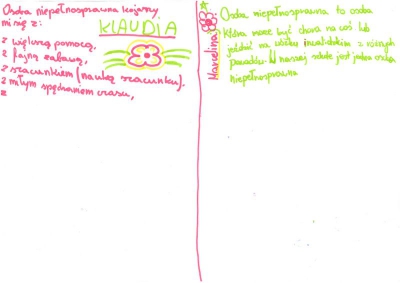 Osoba niepełnosprawna kojarzy
mi się z:
KLAUDIA
z większą pomocą,
z fajną zabawą,
z szacunkiem (nauką szacunku).
z miłym spędzaniem czasu,
z
Marcelina
Osoba niepełnosprawna to osoba
która może być chora na coś lub
jeździć na wózku inwalidzkim z różnych
powodów. W naszej szkole jest jedna osoba
niepełnosprawna